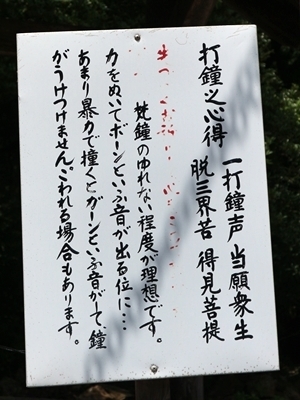 打鐘之心得
一打鐘声 当願衆生
脱三界苦 得見菩提
梵鐘のゆれない程度が理想です。
力をぬいてボーンといふ音が出る位に…
あまり暴力で撞くとガーンといふ音がて、鐘
がうけつけません。こわれる場合もあります。